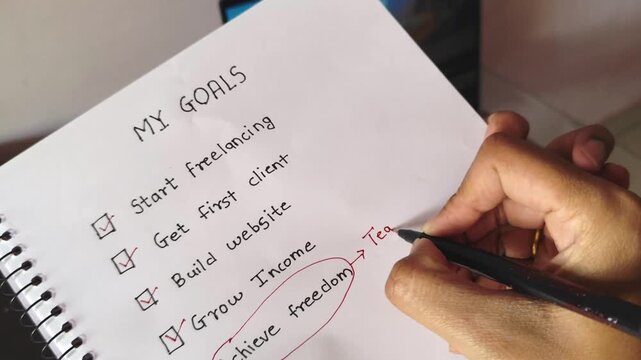 MY GOALS
Start freelancing
Get first client
Build website
Grow Income
chieve freedom → Tea